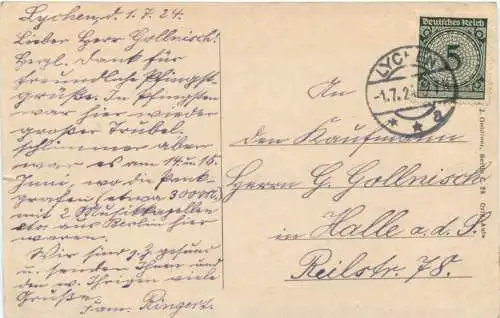 Lychen, d. 1.7.24.
Lieber Herr Gollnisch!
Herzl. Dank für
freundliche Pfingst-
grüße. In Pfingsten
war hier wieder
großer Trubel,
schlimmer aber
war es am 14 u 16
Juni, wo die
(etwa 300 M.)
mit 2 Musikkapellen
aus Berlin hier
waren.
Wir sind g. Z. gesund
u. senden Ihnen und
den w. Ihrigen viele
Grüße.
Fam. Ringert.
Deutsches Reich
5
LYCHEN
-1.7.24
* * a
An
den Kaufmann
Herrn G. Gollnisch
in Halle a.d.S.
Reilstr. 78.